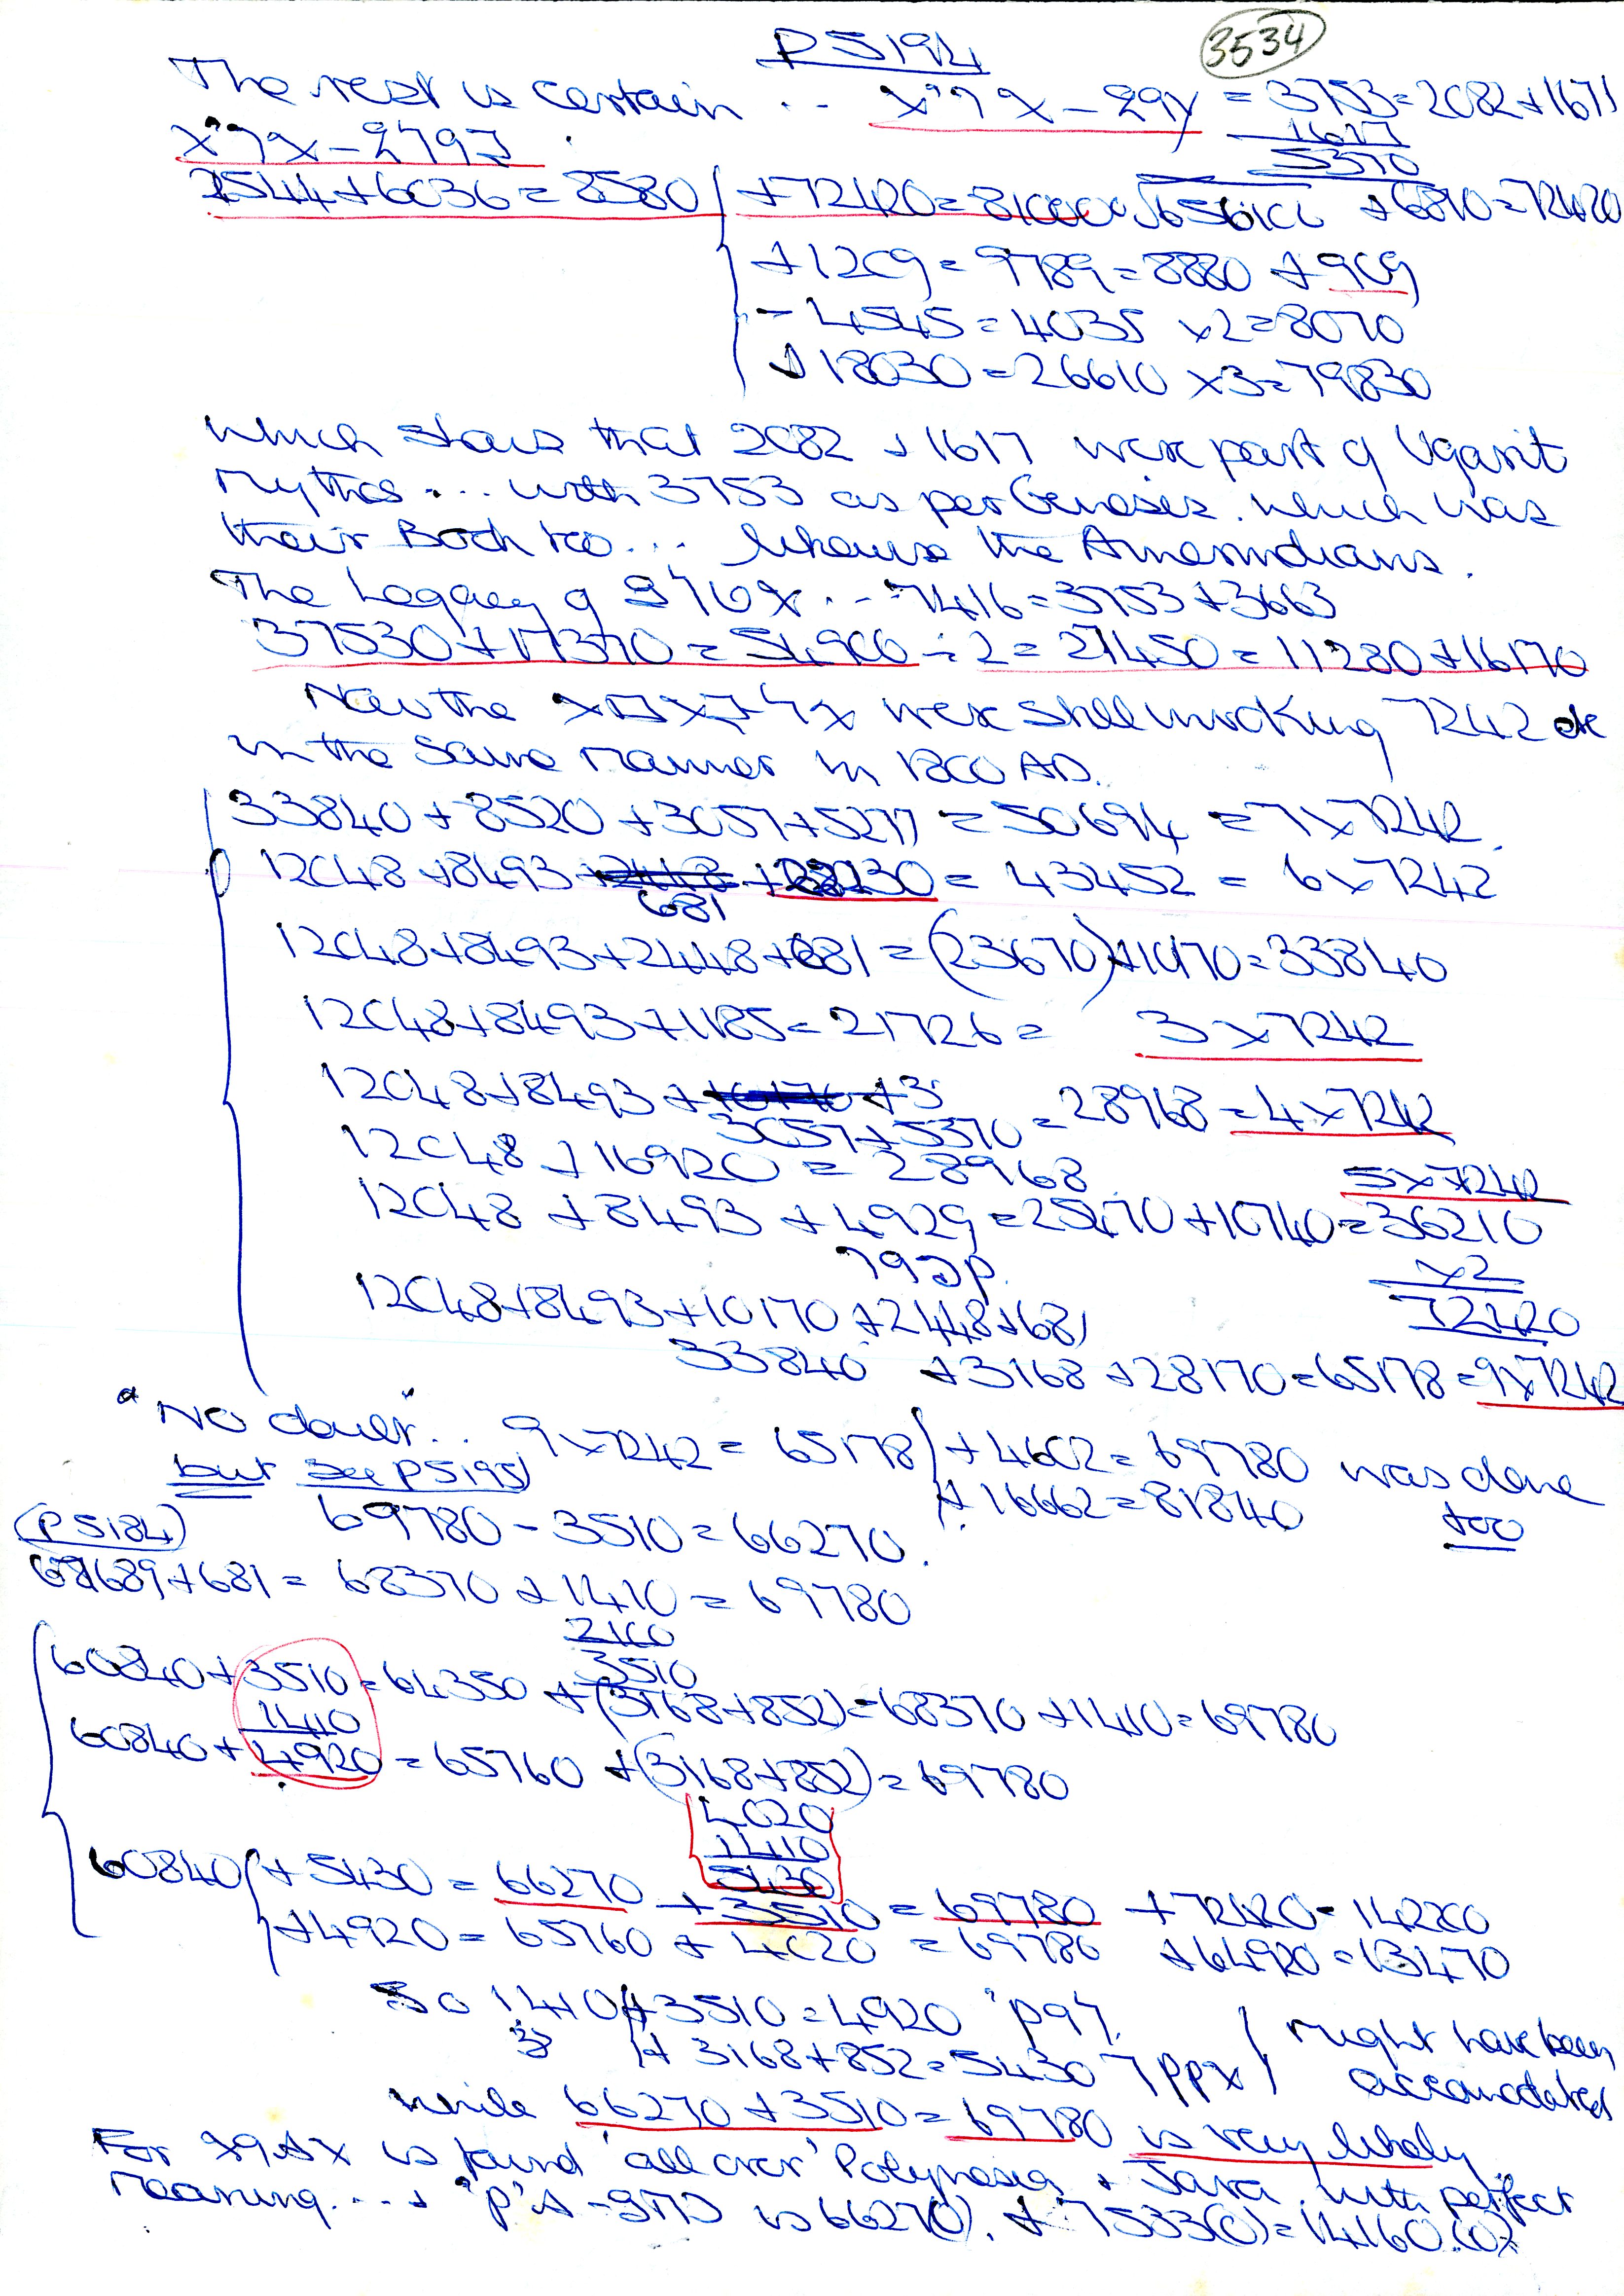 P5194
3534
The rest is certain .. = 3753 = 2082 + 1671
1617
5370
2544 + 6036 = 8580 + 72420 = 81000 65610 + 6810 = 72420
+ 1209 = 9789 = 8880 + 909
- 4545 = 4035 x 2 = 8070
+ 18030 = 26610 x 3 = 79830
which shows that 2082 + 1617 were part of Ugarit
Mythos ... with 3753 as per Genesis. which was
their Book too ... likewise the Amerindians.
The Legacy of .. 7416 = 3753 + 3663
37530 + 17370 = 54900 ÷ 2 = 27450 = 11280 + 16170
Now the were still invoking 7242 etc
in the same manner in 1800 AD.
33840 + 8520 + 3057 + 5277 = 50694 = 7 x 7242
12048 + 8493 + 681 = 43452 = 6 x 7242
12048 + 8493 + 2448 + 681 = (23670) + 10170 = 33840
12048 + 8493 + 1185 = 21726 = 3 x 7242
12048 + 8493 + 3057 + 5370 = 28968 = 4 x 7242
12048 + 16920 = 28968
5 x 7242
12048 + 8493 + 4929 = 25470 + 10740 = 36210
x 2
72420
12048 + 8493 + 10170 + 2448 + 681
33840 + 3168 + 28170 = 65178 = 9 x 7242
"No doubt" .. 9 x 7242 = 65178 + 4602 = 69780 was done
but see P5195) + 16662 = 81840 too
(P5184) 69780 - 3510 = 66270.
67689 + 681 = 68370 + 1410 = 69780
2100
3510
60840 + 3510 = 64350 + (3168 + 852) = 68370 + 1410 = 69780
1410
60840 + 4920 = 65760 + (3168 + 852) = 69780
4020
1410
5430
60840 + 5430 = 66270 + 3510 = 69780 + 72420 = 142200
+ 4920 = 65760 + 4020 = 69780 + 64920 = 13470
So 1410 + 3510 = 4920
+ 3168 + 852 = 5430 might have been
while 66270 + 3510 = 69780 is very likely.
For is found 'all over' Polynesia + Java with perfect
meaning .... + is 66270). + 7533(0) = 14160(0)